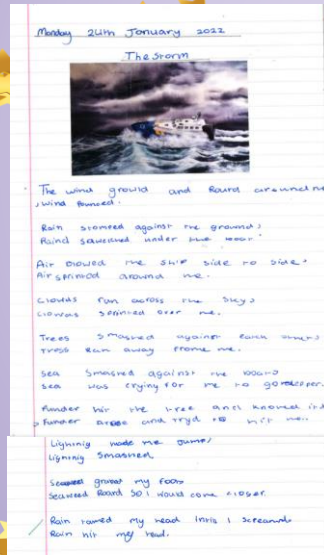 Monday 24th January 2022
The Storm
The wind growld and Roard around me
, wind Pounced.
Rain stomeed against the ground,
Raind sqweched under the
Air blowed the ship side to side.
Air sprintod around me.
Clowds ran across the sky,
Clowds sprinted over me.
Trees smashed against each others
Tress Ran away frome me.
Sea Smashed against the
Sea was crying for me to go deeper.
Funder hit the tree and knoked it
Funder and tryd to hit me.
Lightnig made me Jump,
Lightnig Smashed.
Seaweed grabed my foot
Seaweed Roard so I would come closer.
Rain ramed my head I
Rain hit my head.